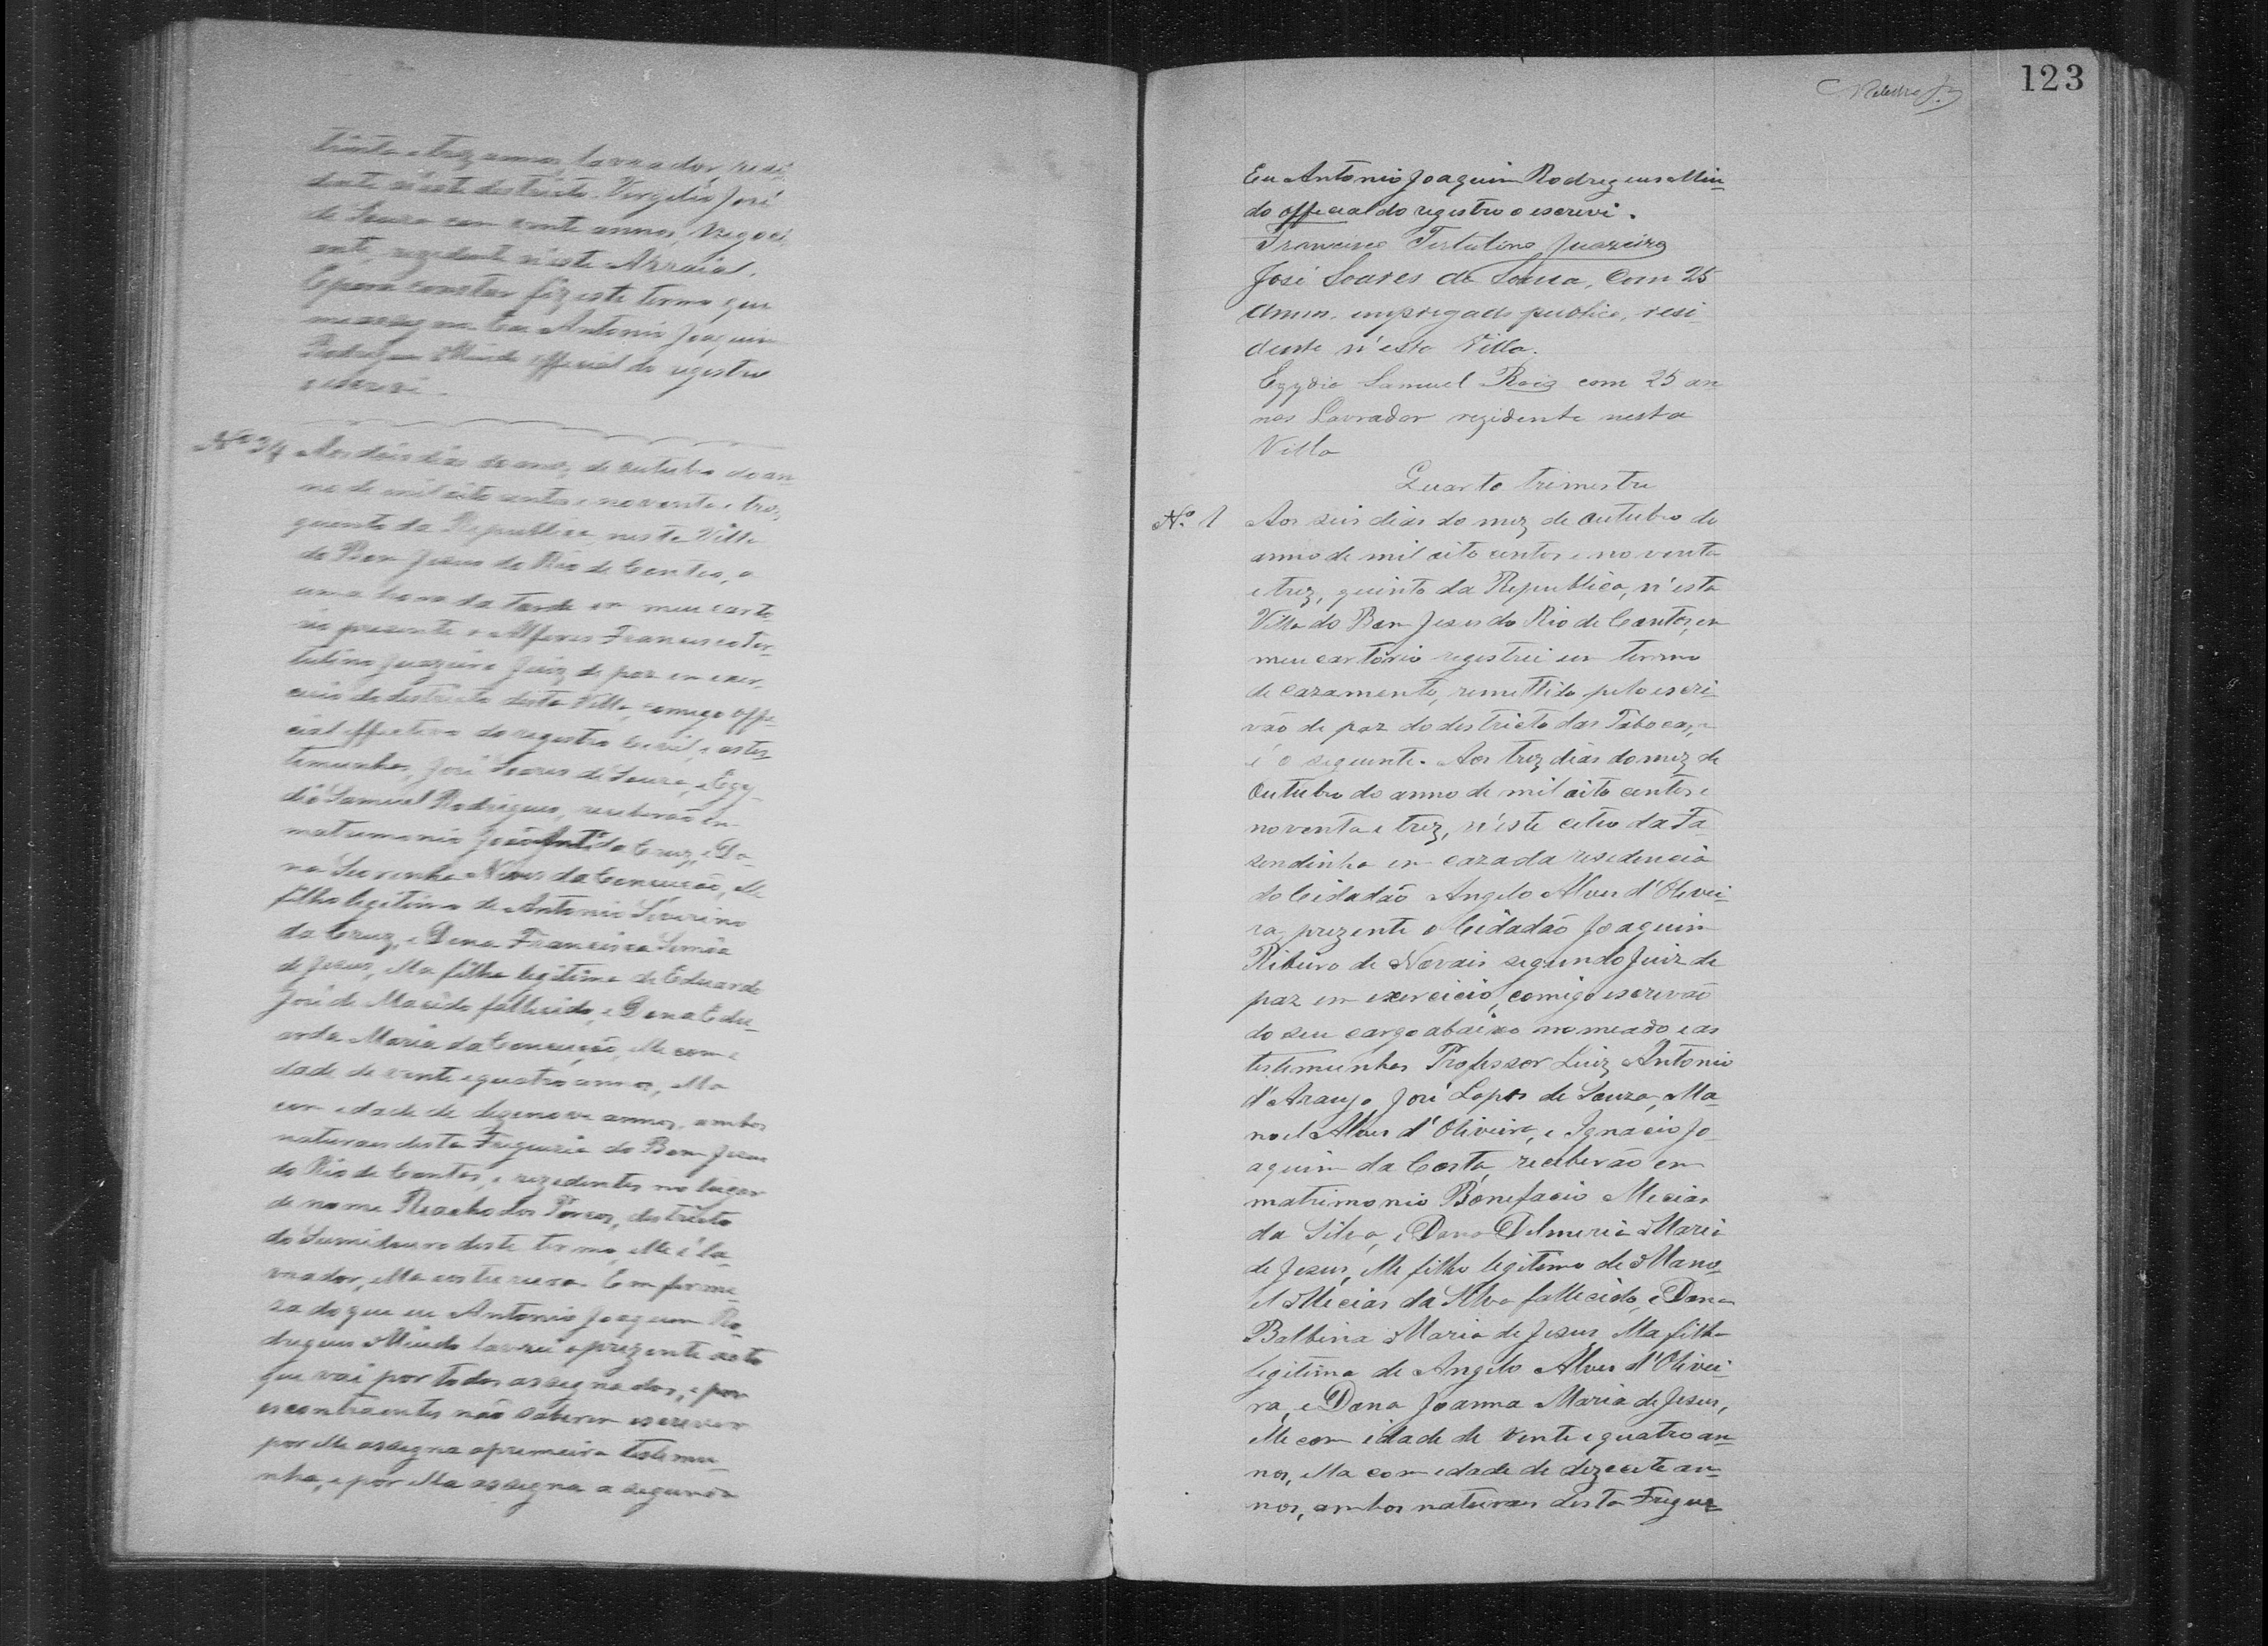 trinta e trez annos, lavrador, resi-
dente n'este destricto. Vergilio José
de Souza com vinte annos, Negoci-
ante, rezidente n'este Arraial.
E para constar fiz este termo que
me assigno. Eu Antonio Joaquim
Rodrigues Mindo official do registro
o escrevi.
Nº 34 Aos dois dias do mez de outubro do an-
no de mil oito centos e noventa e trez,
quinto da Republica, nesta Villa
do Bom Jesus do Rio de Contas, a
uma hora da tarde em meu carto-
rio prezente o Alferes Francisco Ter-
tulino Juazeiro Juiz de paz em exer-
cicio do destricto desta Villa, comigo offi-
cial effectivo do registro Civil, e as tes-
temunhas, José Soares de Souza, e Egy-
dio Samuel Rodrigues, receberão em
matrimonio João da Cruz, e Do-
na Neves da Conceição, elle
filho legitimo de Antonio Severino
da Cruz, e Dona Francisca
de Jesus, ella filha legitima de Eduardo
José de Macêdo fallecido, e Dona Edu-
arda Maria da Conceição, elle com e
dade de vinte e quatro annos, ella
com edade de dezenove annos, ambos
naturaes desta Freguezia do Bom Jesus
do Rio de Contas, e rezedentes no lugar
de nome Riacho dos Porcos, destricto
do Sumidouro deste termo, elle é la-
vrador, ella costureira. Em firme-
za do que eu Antonio Joaquim Ro-
drigues Mindo lavrei o prezente acto
que vai por todos assignados, e por
os contraentes não saberem escrever
por elle assigna a premeira testemu-
nha, e por ella assigna a segunda
123
Eu Antonio Joaquim Rodrigues Min-
do official do registro o escrevi.
Francisco Tertulino Juazeiro
José Soares de Souza, Com 25
annos, empregado publico, resi-
dente n'esta Villa.
Egydio Samuel Roiz com 25 an
nos Lavrador rezidente nesta
Villa
Quarto trimestre
Nº 1 Aos seis dias do mez de outubro do
anno de mil oito centos e noventa
e trez, quinto da Republica, n'esta
Villa do Bom Jesus do Rio de Contas, em
meu cartorio registrei um termo
de cazamento, remettido pelo escri-
vão de paz do destricto das Tabocas, e
é o seguinte. Aos trez dias do mez de
Outubro do anno de mil oito centos e
noventa e trez, n'este citio da Fa-
zendinha em caza da residencia
do Cidadão Angelo Alves d'Olivei-
ra, prezente o Cidadão Joaquim
Ribeiro de Novais segundo Juiz de
paz em exercicio, comigo escrivão
do seu cargo abaixo nomeado e as
testemunhas Professor Luiz Antonio
d'Araujo, José Lopes de Souza, Ma-
noel Alves d'Oliveira, e Ignacio Jo-
aquim da Costa, receberão em
matrimonio Bonefacio Mecias
da Silva, e Dona Delmeria Maria
de Jesus, elle filho legitimo de Mano-
el Mecias da Silva fallecido, e Dona
Balbina Maria de Jesus, ella filha
legitima de Angelo Alves d'Olivei-
ra, e Dona Joanna Maria de Jesus,
elle com idade de vinte e quatro an-
nos, ella com edade de dezecete an-
nos, ambos naturaes desta Fregue-